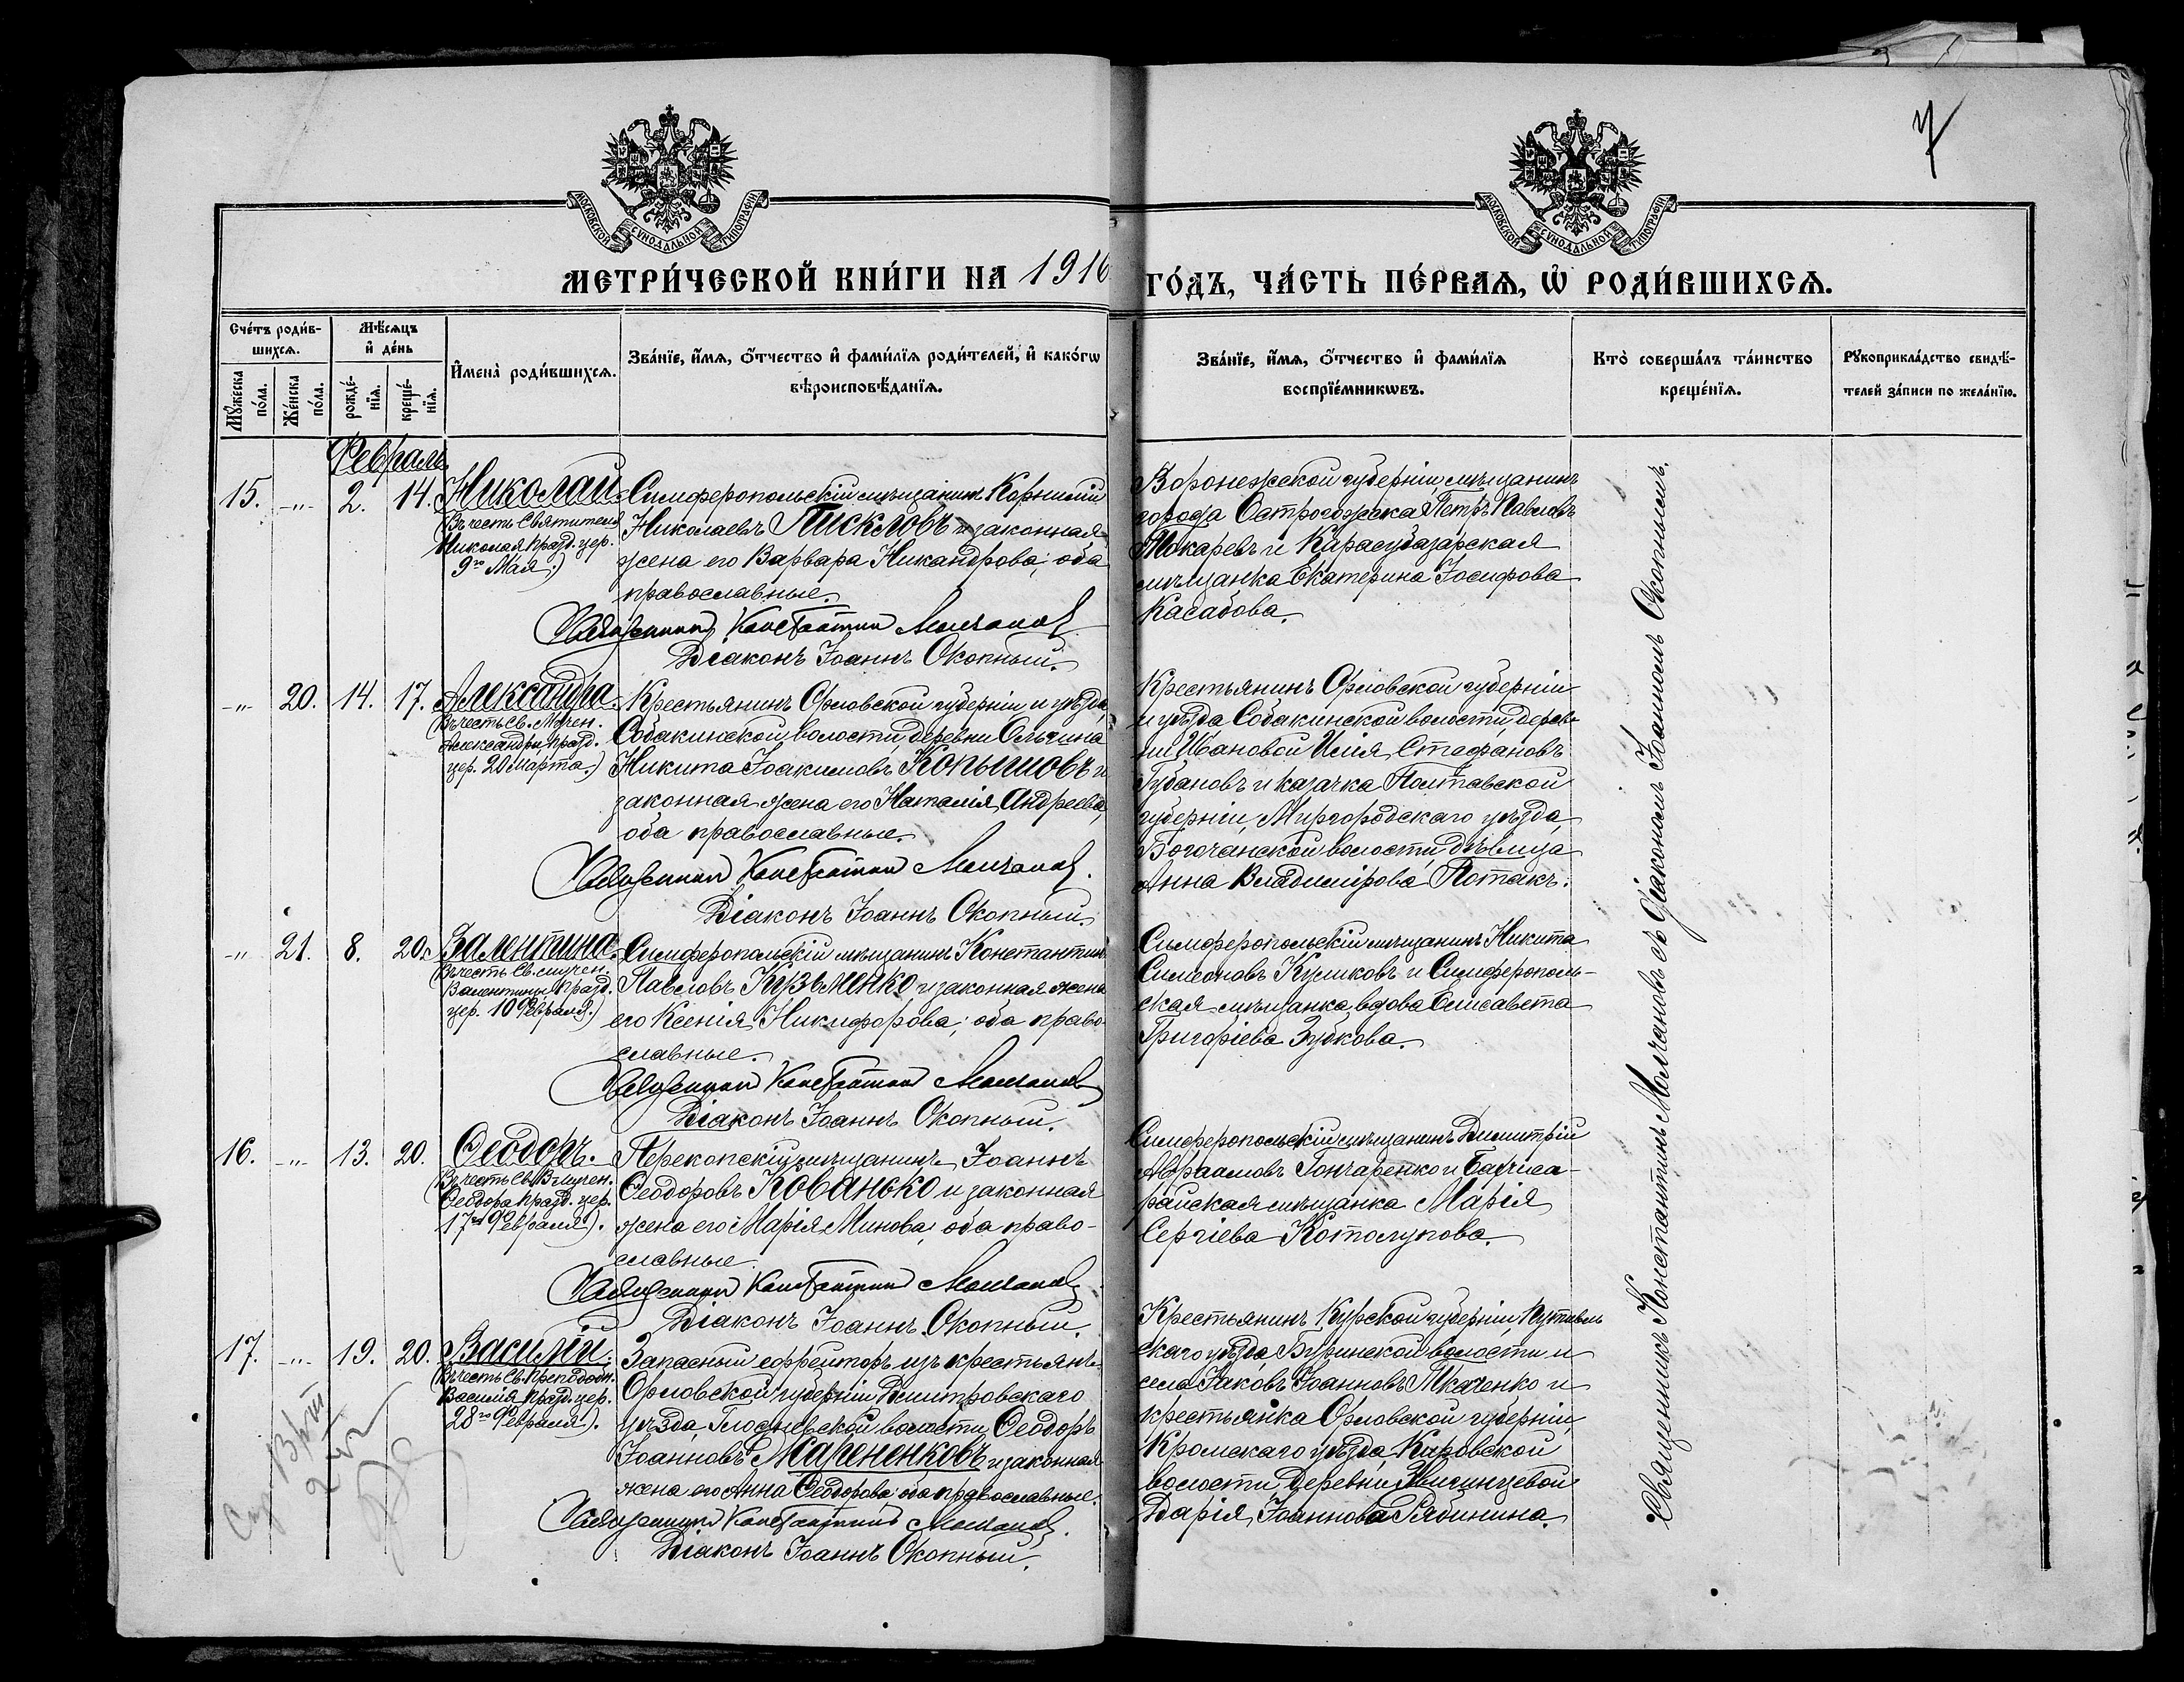 7
МОСКОВСКОЙ СѴНОДАЛЬНОЙ ТИПОГРАФІИ
МОСКОВСКОЙ СѴНОДАЛЬНОЙ ТИПОГРАФІИ
МЕТРИ́ЧЕСКОЙ КНИ́ГИ НА 1916 ГО́ДЪ, ЧА́СТЬ ПЕ́РВАѦ, Ѽ РОДИ́ВШИХСѦ.
Сче́тъ роди́в-
шихсѧ.
Мѹ́жеска
по́ла.
Же́нска
по́ла.
Мѣ́сѧцъ
и҆ де́нь
рожде́-
нїѧ.
креще́-
нїѧ.
И҆мена̀ роди́вшихсѧ.
Зва́нїе, и҆́мѧ, ѻ҆́тчество и҆ фами́лїѧ роди́телей, и҆ како́гѡ
вѣроисповѣ́данїѧ.
Зва́нїе, и҆́мѧ, ѻ҆́тчество и҆ фами́лїѧ
воспрїе́мникѡвъ.
Кто̀ соверша́лъ та́инство
креще́нїѧ.
Рꙋкоприкла́дство свидѣ́-
телей за́писи по жела́нїю.
Февраль
15. -"- 2. 14. Николай.
(Въ честь Святителя
Николая празд. цер.
9го Мая.)
Симферопольскій мѣщанинъ Корнилій
Николаевъ Пискловъ и законная
жена его Варвара Никандрова; оба
православные.
Священникъ Константинъ Молчановъ
Діаконъ Іоаннъ Окопный.
Воронежской губерніи мѣщанинъ
города Острогожска Петръ Павловъ
Токаревъ и Карасубазарская
мѣщанка Екатерина Іосифова
Касабова.
-"- 20. 14. 17. Александра.
(Въ честь Св. Мучен.
Александры празд.
цер. 20 Марта.)
Крестьянинъ Орловской губерніи и уѣзда,
Собакинской волости, деревни
Никита Іоакимовъ Копыловъ и
законная жена его Наталія Андреева,
оба православные.
Священникъ Константинъ Молчановъ.
Діаконъ Іоаннъ Окопный.
Крестьянинъ Орловской губерніи
и уѣзда Собакинской волости, дерев-
ни Ивановой Илія Стефановъ
Губановъ и казачка Полтавской
губерніи, Миргородскаго уѣзда,
Богочанской волости, дѣвица
Анна Владимірова Потакъ.
-"- 21. 8. 20. Валентина.
(Въ честь Св. мучен.
Валентины празд.
цер. 10 Февраля.)
Симферопольскій мѣщанинъ Константинъ
Павловъ Кузьменко и законная жена
его Ксенія Никифорова; оба право-
славные.
Священникъ Константинъ Молчановъ
Діаконъ Іоаннъ Окопный.
Симферопольскій мѣщанинъ Никита
Симеоновъ Куликовъ и Симферополь-
ская мѣщанка вдова Елисавета
Григоріева Зубкова.
16. -"- 13. 20. Ѳеодоръ.
(Въ честь Св. Вмучен.
Ѳеодора празд. цер.
17го Февраля).
Перекопскій мѣщанинъ Іоаннъ
Ѳеодоровъ Кованько и законная
жена его Марія Минова, оба право-
славные.
Священникъ Константинъ Молчановъ
Діаконъ Іоаннъ Окопный.
Симферопольскій мѣщанинъ Димитрій
Авраамовъ Гончаренко и Бахчиса-
райская мѣщанка Марія
Сергіева Котолупова.
17. -"- 19. 20. Василій.
(Въ честь Св. Преподобн.
Василія празд. цер.
28го Февраля).
Запасный ефрейторъ изъ крестьянъ
Орловской губерніи Дмитровскаго
уѣзда, Глодневской волости Ѳеодоръ
Іоанновъ Мажененковъ и законная
жена его Анна Ѳеодорова оба православные.
Священникъ Константинъ Молчановъ.
Діаконъ Іоаннъ Окопный.
Крестьянинъ Курской губерніи, Путивль
скаго уѣзда Бурынской волости и
села Іаковъ Іоанновъ Ткаченко и
крестьянка Орловской губерніи,
Кромскаго уѣзда, Кировской
волости деревни
Дарія Іоаннова Рябинина.
Священникъ Константинъ Молчановъ съ Діакономъ Іоанномъ Окопнымъ.